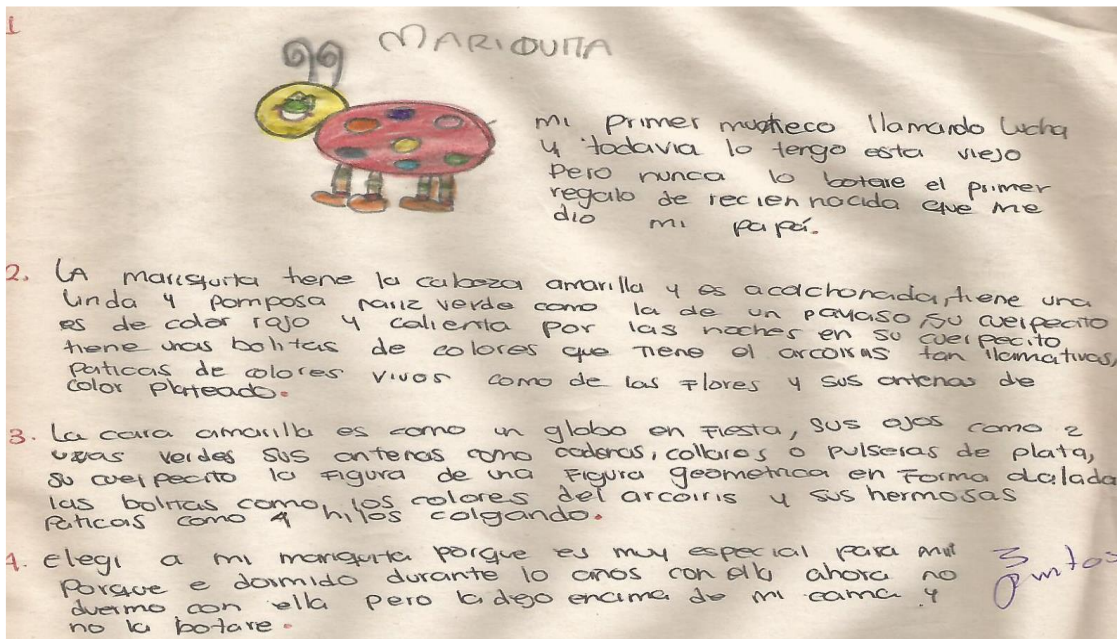 1
MARIQUITA
mi primer muñeco llamando lucha
y todavia lo tengo esta viejo
pero nunca lo botare el primer
regalo de recien nacida que me
dio mi papá.
2. LA mariquita tiene la cabeza amarilla y es acolchonada, tiene una
linda y pomposa nariz verde como la de un payaso, su cuerpecito
es de color rojo y calienta por las noches en su cuerpecito
tiene unas bolitas de colores que tiene el arcoiras tan llamativas,
paticas de colores vivos como de las flores y sus antenas de
color plateado.
3. La cara amarilla es como un globo en fiesta, sus ojos como 2
uvas verdes sus antenas como cadenas, collares o pulseras de plata,
su cuerpecito la figura de una figura geometrica en forma
las bolitas como los colores del arcoiris y sus hermosas
paticas como 4 hilos colgando.
4. elegi a mi mariquita porque es muy especial para mi
porque e dormido durante 10 años con ella ahora no
duermo con ella pero la dejo encima de mi cama y
no la botare.
3
puntos